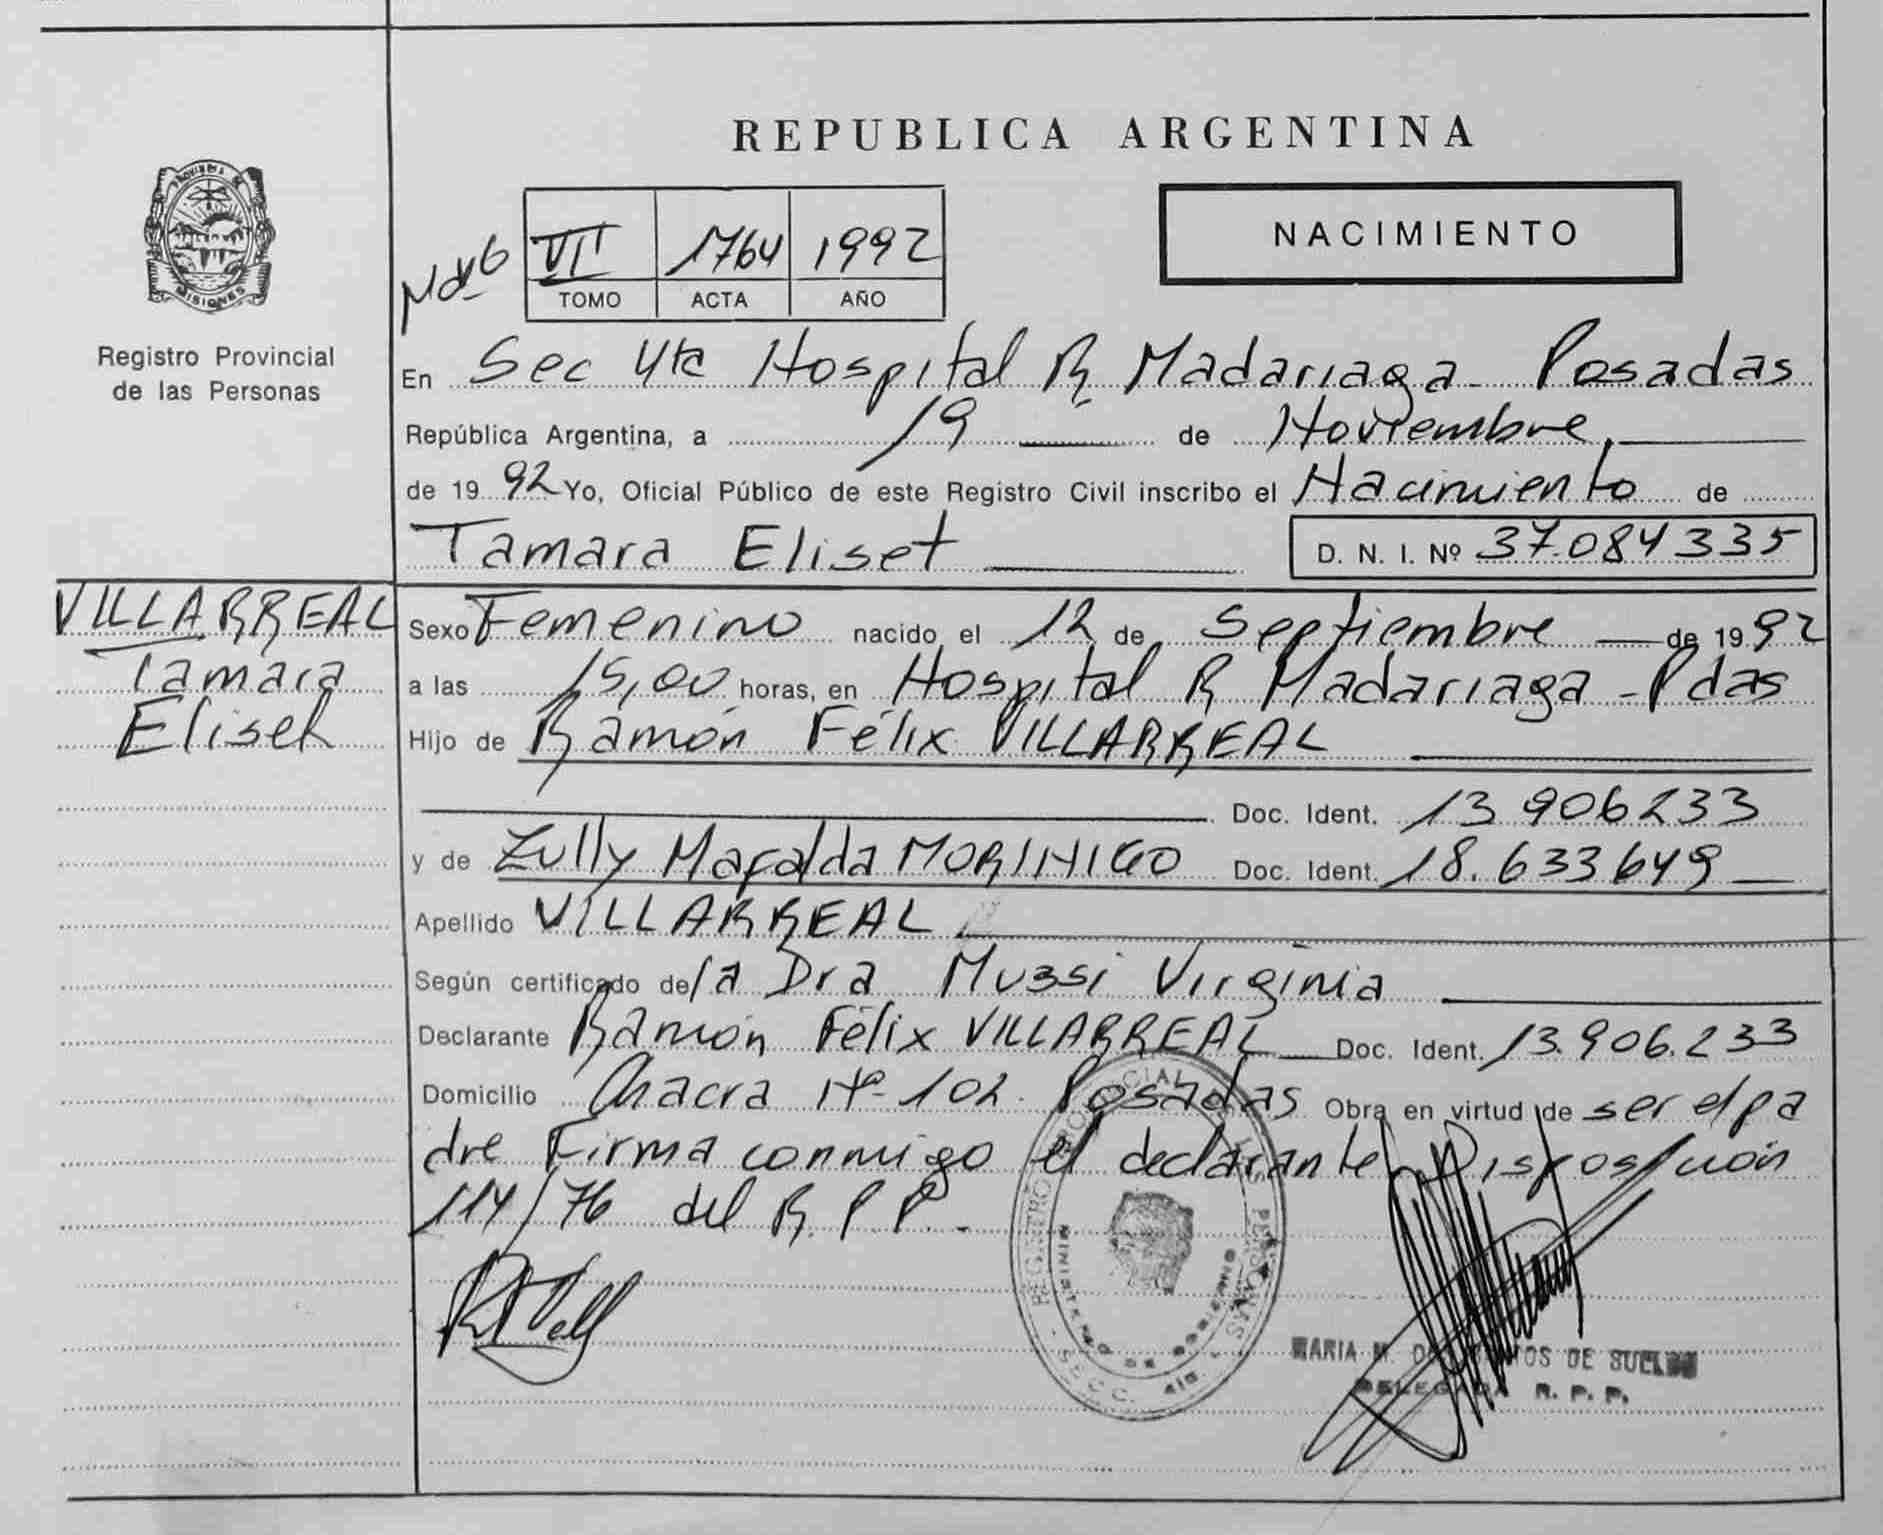 REPUBLICA ARGENTINA
NACIMIENTO
VII 1764 1992
TOMO ACTA AÑO
PROVINCIA DE
MISIONES
Registro Provincial
de las Personas
En Sec 4ta Hospital R Madariaga - Posadas
República Argentina, a 19 de Noviembre
de 1992 Yo, Oficial Público de este Registro Civil inscribo el Nacimiento de
Tamara Eliset D. N. I. Nº 37.084335
VILLARREAL
Tamara
Eliset
Sexo Femenino nacido el 12 de Septiembre de 1992
a las 15,00 horas, en Hospital R Madariaga - Pdas
Hijo de Ramón Félix VILLARREAL
Doc. Ident. 13 906233
y de Zully Mafalda MORINIGO Doc. Ident. 18.633649
Apellido VILLARREAL
Según certificado de la Dra Mussi Virginia
Declarante Ramón Félix VILLARREAL Doc. Ident. 13.906.233
Domicilio Chacra Nº 102. Posadas Obra en virtud de ser el pa
dre Firma conmigo el declarante Disposición
114/76 del R P P.
REGISTRO PROVINCIAL DE LAS PERSONAS
MINISTERIO DE GOBIERNO
SECC. 4ta.
MARIA M. DOS SANTOS DE SUELDO
DELEGADA R. P. P.